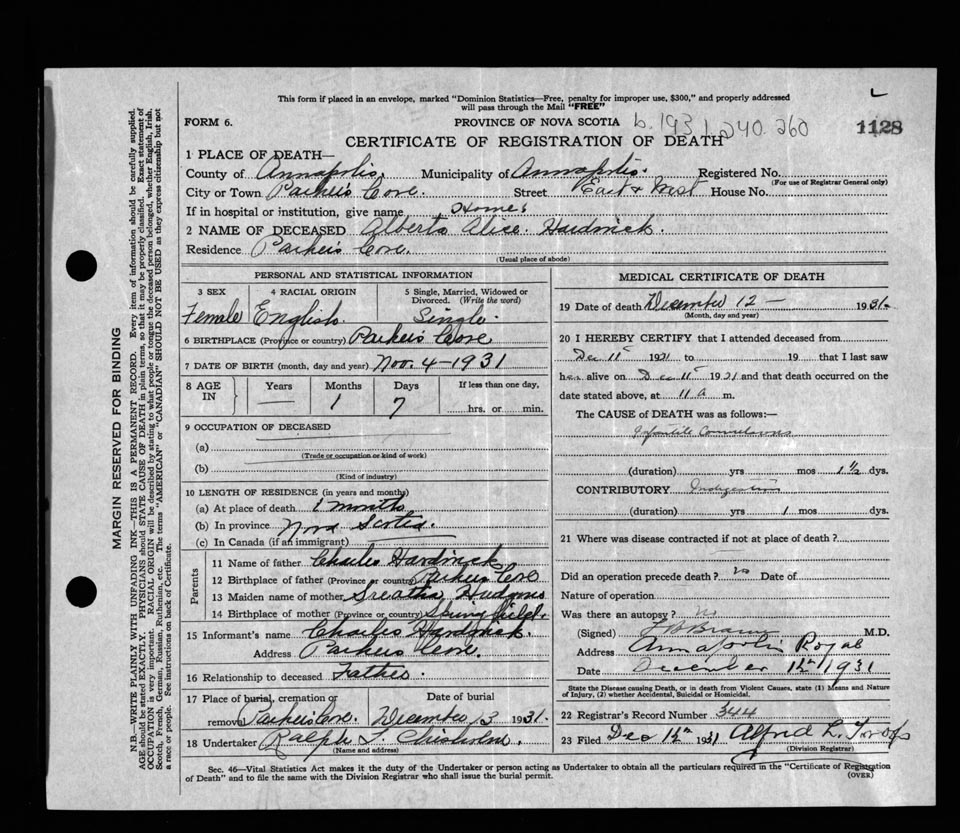 This form if placed in an envelope, marked "Dominion Statistics—Free, penalty for improper use, $300," and properly addressed
will pass through the Mail "FREE"
FORM 6.
PROVINCE OF NOVA SCOTIA
b. 1931 240. 260
1128
CERTIFICATE OF REGISTRATION OF DEATH
1 PLACE OF DEATH—
County of Annapolis. Municipality of Annapolis. Registered No.
(For use of Registrar General only)
City or Town Parker's Cove. Street East & West House No.
If in hospital or institution, give name Home.
2 NAME OF DECEASED Alberta Alice. Hardwick.
Residence Parker's Cove.
(Usual place of abode)
PERSONAL AND STATISTICAL INFORMATION
3 SEX
Female
4 RACIAL ORIGIN
English.
5 Single, Married, Widowed or
Divorced. (Write the word)
Single.
6 BIRTHPLACE (Province or country) Parker's Cove
7 DATE OF BIRTH (month, day and year) Nov. 4-1931
8 AGE
IN
Years
—
Months
1
Days
7
If less than one day,
hrs. or min.
9 OCCUPATION OF DECEASED
(a)
(Trade or occupation or kind of work)
(b)
(Kind of industry)
10 LENGTH OF RESIDENCE (in years and months)
(a) At place of death 1 months
(b) In province Nova Scotia.
(c) In Canada (if an immigrant)
Parents
11 Name of father Charles Hardwick
12 Birthplace of father (Province or country) Parkers Cove
13 Maiden name of mother Hudgins
14 Birthplace of mother (Province or country) Springfield.
15 Informant's name Charles Hardwick.
Address Parkers Cove.
16 Relationship to deceased Father.
17 Place of burial, cremation or
removal Parkers Cove.
Date of burial
December 13 1931.
18 Undertaker Ralph T. Chisholm.
(Name and address)
MEDICAL CERTIFICATE OF DEATH
19 Date of death December 12 — 1931.
(Month, day and year)
20 I HEREBY CERTIFY that I attended deceased from
Dec 11 1931 to 19 that I last saw
her alive on Dec 11 1931 and that death occurred on the
date stated above, at 11 a m.
The CAUSE of DEATH was as follows:—
Infantile Convulsions
(duration) yrs mos 1½ dys.
CONTRIBUTORY Indigestion
(duration) yrs 1 mos dys.
21 Where was disease contracted if not at place of death?
Did an operation precede death? no Date of
Nature of operation
Was there an autopsy? no
(Signed) M.D.
Address Annapolis Royal
Date December 12th 1931
State the Disease causing Death, or in death from Violent Causes, state (1) Means and Nature
of Injury; (2) whether Accidental, Suicidal or Homicidal.
22 Registrar's Record Number 344
23 Filed Dec 12th 1931 Alfred L.
(Division Registrar)
Sec. 46—Vital Statistics Act makes it the duty of the Undertaker or person acting as Undertaker to obtain all the particulars required in the "Certificate of Registration
of Death" and to file the same with the Division Registrar who shall issue the burial permit.
(OVER)
MARGIN RESERVED FOR BINDING
N.B.—WRITE PLAINLY WITH UNFADING INK—THIS IS A PERMANENT RECORD. Every item of information should be carefully supplied.
AGE should be stated EXACTLY. PHYSICIANS should STATE CAUSE OF DEATH in plain terms, so that it may be properly classified. Exact statement of
OCCUPATION is very important. RACIAL ORIGIN will be described by stating to what people or tongue the deceased person belonged, whether English, Irish,
Scotch, French, German, Russian, Ruthenian, etc. The terms "AMERICAN" or "CANADIAN" SHOULD NOT BE USED as they express citizenship but not
a race or people. See instructions on back of Certificate.